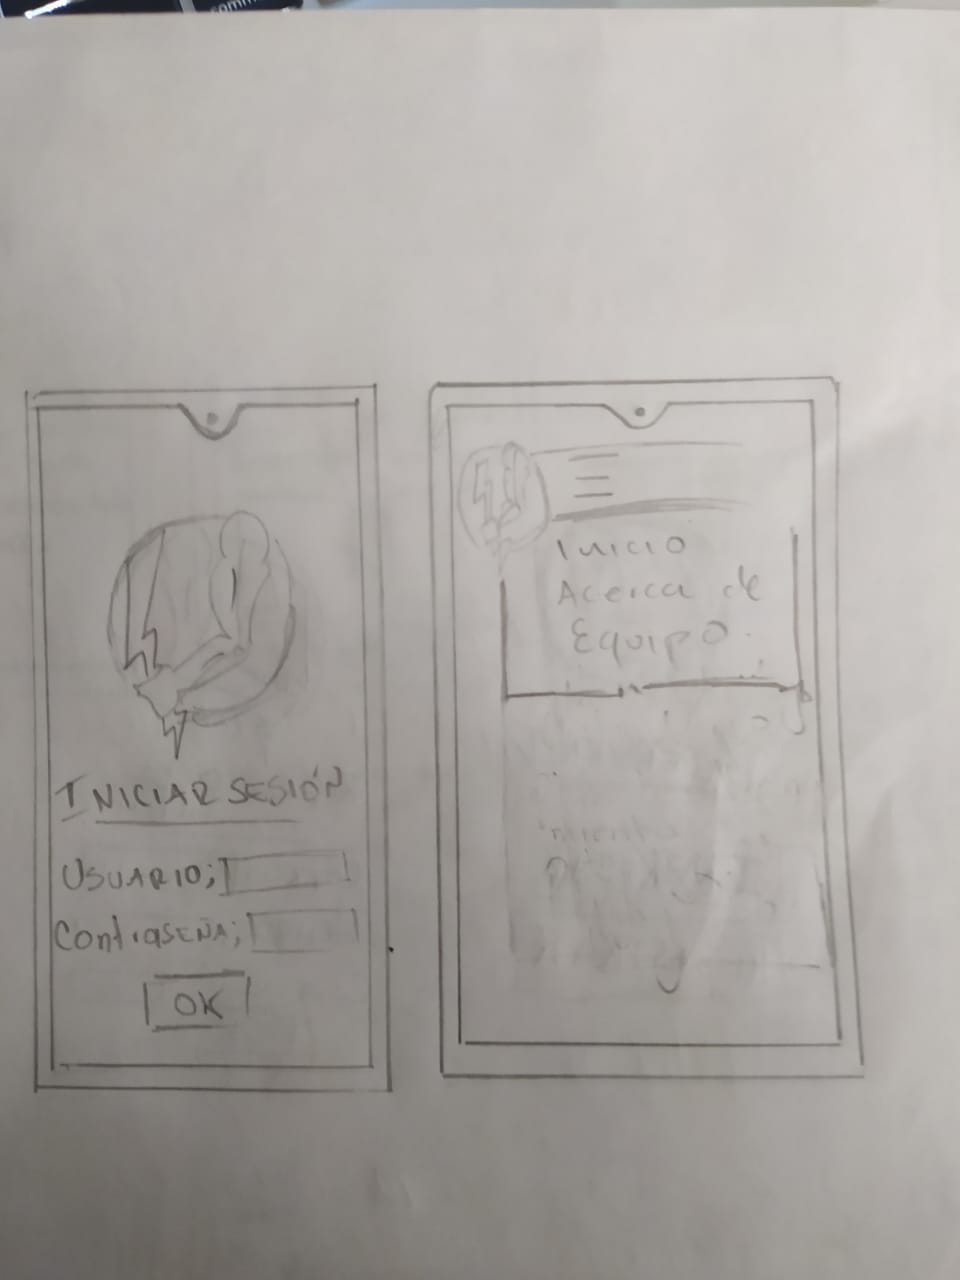 comm
INICIAR SESIÓN
USUARIO;
ContraSEÑA;
OK
Inicio
Acerca de
Equipo.